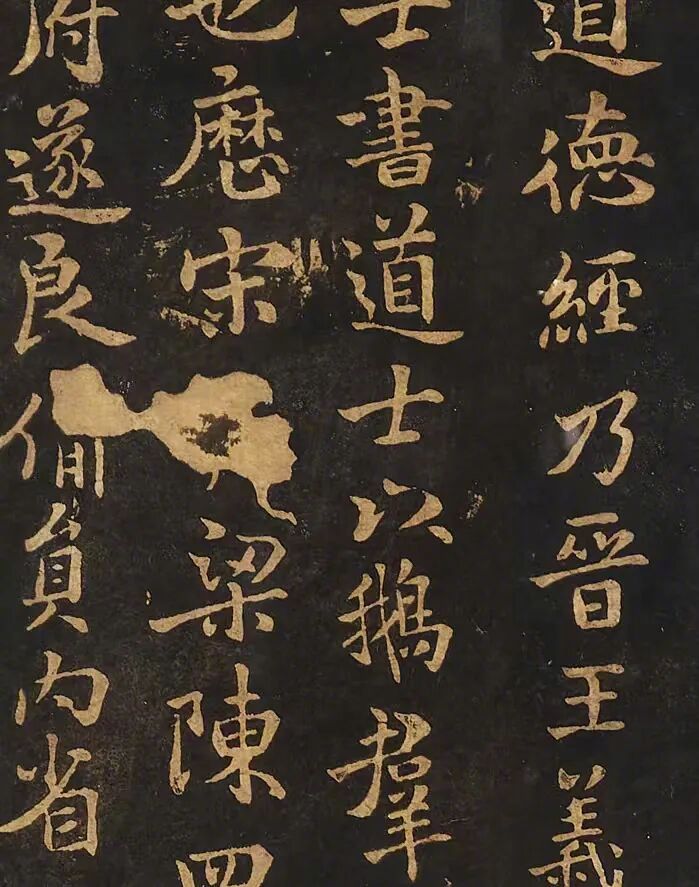 道德經乃晉王羲
士書道士以鵝群
也歷宋梁陳四
府遂良借員內省